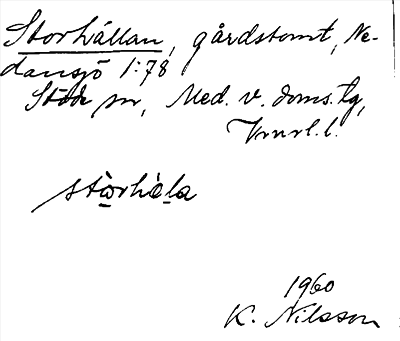 Storhällan, gårdstomt, Ne-
dansjö 1:78
Stöde sn, Med. v. doms. tg,
Vnrl. l.
stòrhèla
1960
K. Nilsson